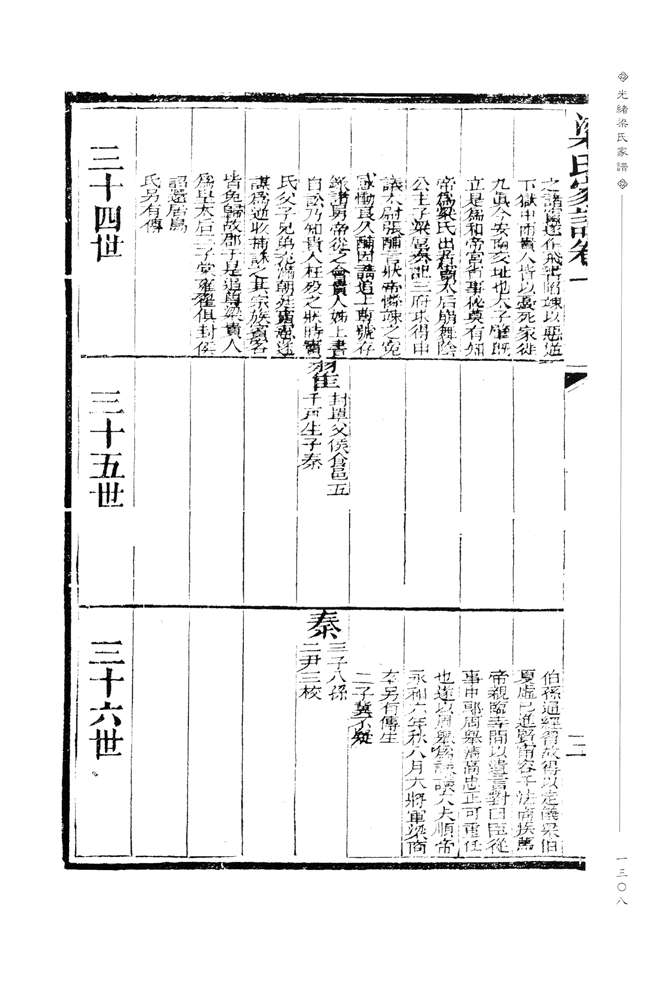 光緒梁氏家譜
一三〇八
梁氏家譜卷一
二
三十四世
之諸竇遂作飛書陷竦以惡逆
下獄中而貴人待以憂死家徙
九真今安南交址也太子肇既
立是為和帝宮省事後莫有知
帝為梁氏出者竇太后崩舞陰
公主子梁扈奏記三府求得申
議太尉張酺言狀帝憐竦之寃
感慟良久酺因請追上尊號存
錄諸舅帝從之會貴人姊上書
自訟乃知貴人枉歿之狀時竇
氏父子兄弟充滿朝廷竇憲逆
謀為逆收捕誅之其宗族賓客
皆免歸故郡于是追尊梁貴人
為皇太后三子棠雍翟俱封侯
詔還居烏
氏另有傳
三十五世
翟
封單父侯食邑五
千戶生子秦
三十六世
伯孫通經
故得以定儀梁伯
夏虛已進賢甯容子法
疾篤
帝親臨幸問以遺言對曰臣從
事中郎周舉清高忠正可重任
也遂以周舉為諫議大夫順帝
永和六年秋八月大將軍梁商
卒另有傳生
二子冀不疑
秦
三子八孫
二尹三校